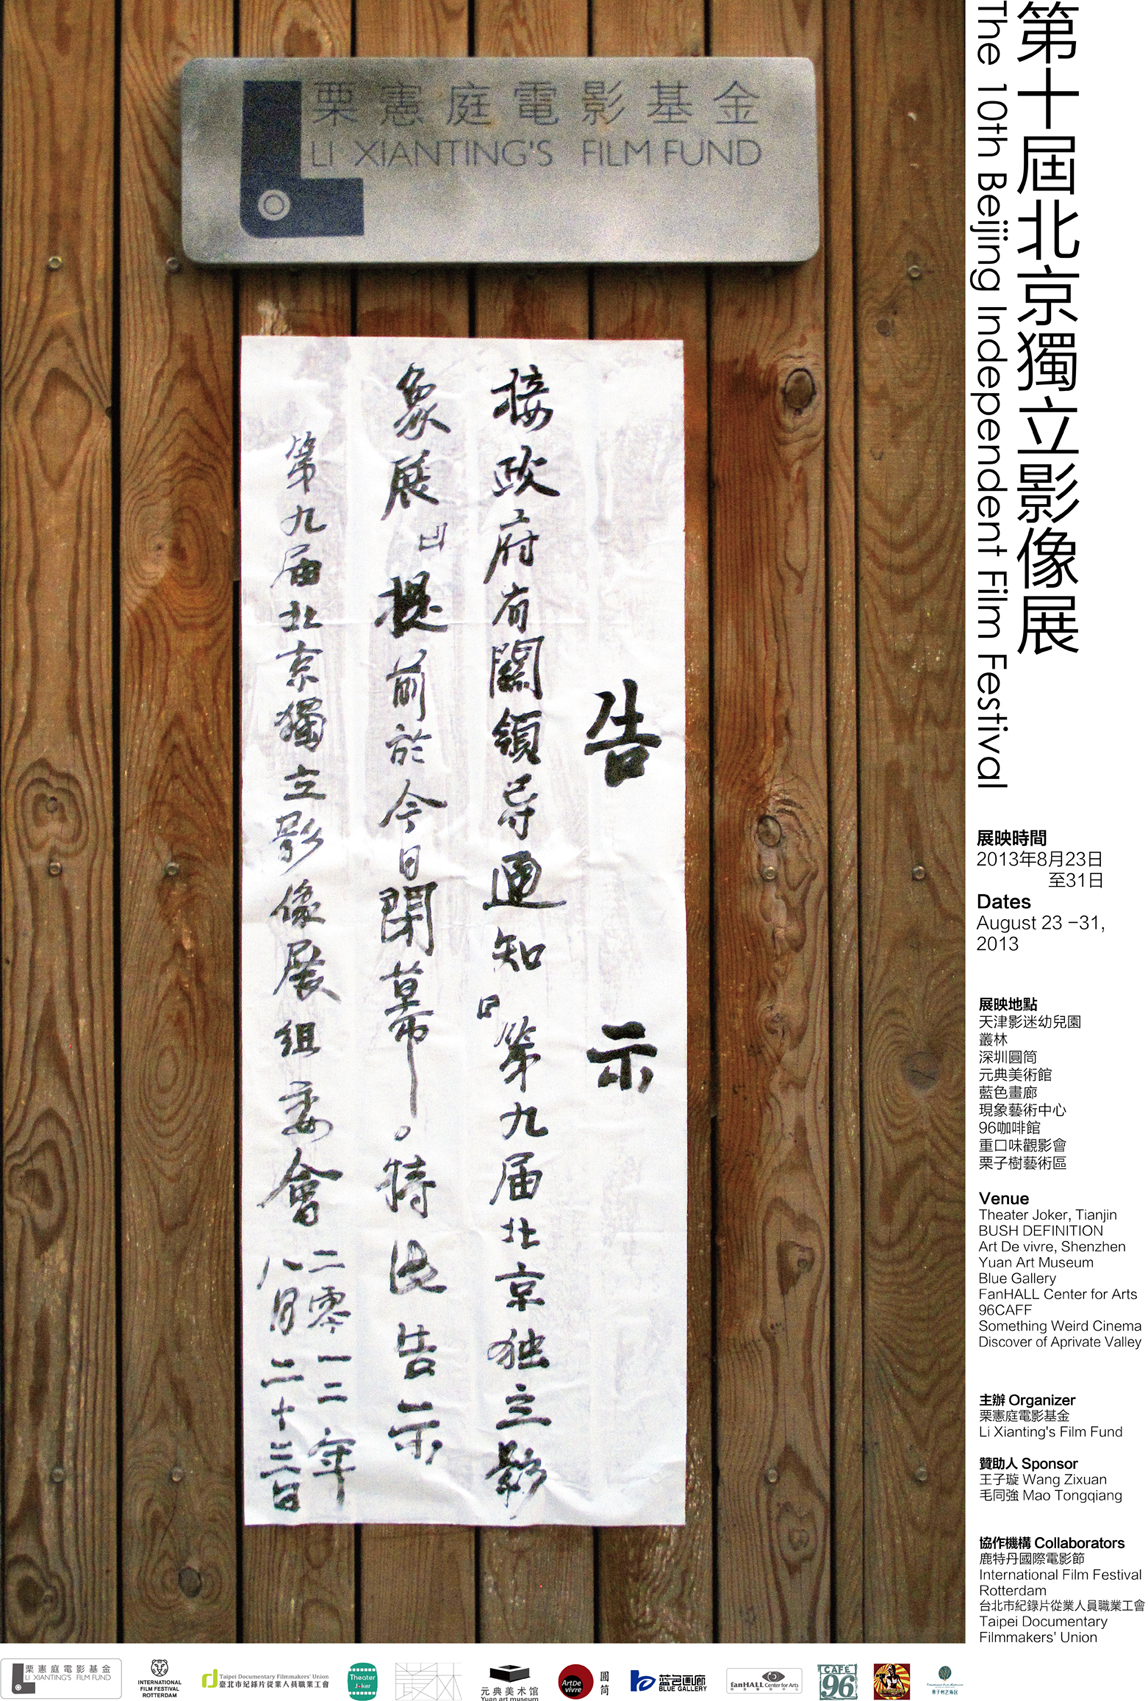 栗憲庭電影基金
LI XIANTING'S FILM FUND
告示
接政府有關領导通知『第九届北京独立影
象展』提前於今日閉幕。特此告示
第九届北京獨立影像展組委會
二零一二年
八月二十三日
第十屆北京獨立影像展
The 10th Beijing Independent Film Festival
展映時間
2013年8月23日
至31日
Dates
August 23 –31,
2013
展映地點
天津影迷幼兒園
叢林
深圳圓筒
元典美術館
藍色畫廊
現象藝術中心
96咖啡館
重口味觀影會
栗子樹藝術區
Venue
Theater Joker, Tianjin
BUSH DEFINITION
Art De vivre, Shenzhen
Yuan Art Museum
Blue Gallery
FanHALL Center for Arts
96CAFF
Something Weird Cinema
Discover of Aprivate Valley
主辦 Organizer
栗憲庭電影基金
Li Xianting's Film Fund
贊助人 Sponsor
王子璇 Wang Zixuan
毛同強 Mao Tongqiang
協作機構 Collaborators
鹿特丹國際電影節
International Film Festival
Rotterdam
台北市紀錄片從業人員職業工會
Taipei Documentary
Filmmakers' Union
栗憲庭電影基金
LI XIANTING'S FILM FUND
INTERNATIONAL
FILM FESTIVAL
ROTTERDAM
Taipei Documentary Filmmakers' Union
臺北市紀錄片從業人員職業工會
Theater
Joker
元典美术馆
Yuan art museum
ArtDe
vivre
圆筒
蓝色画廊
BLUE GALLERY
fanHALL Center for Arts
CAFE
96